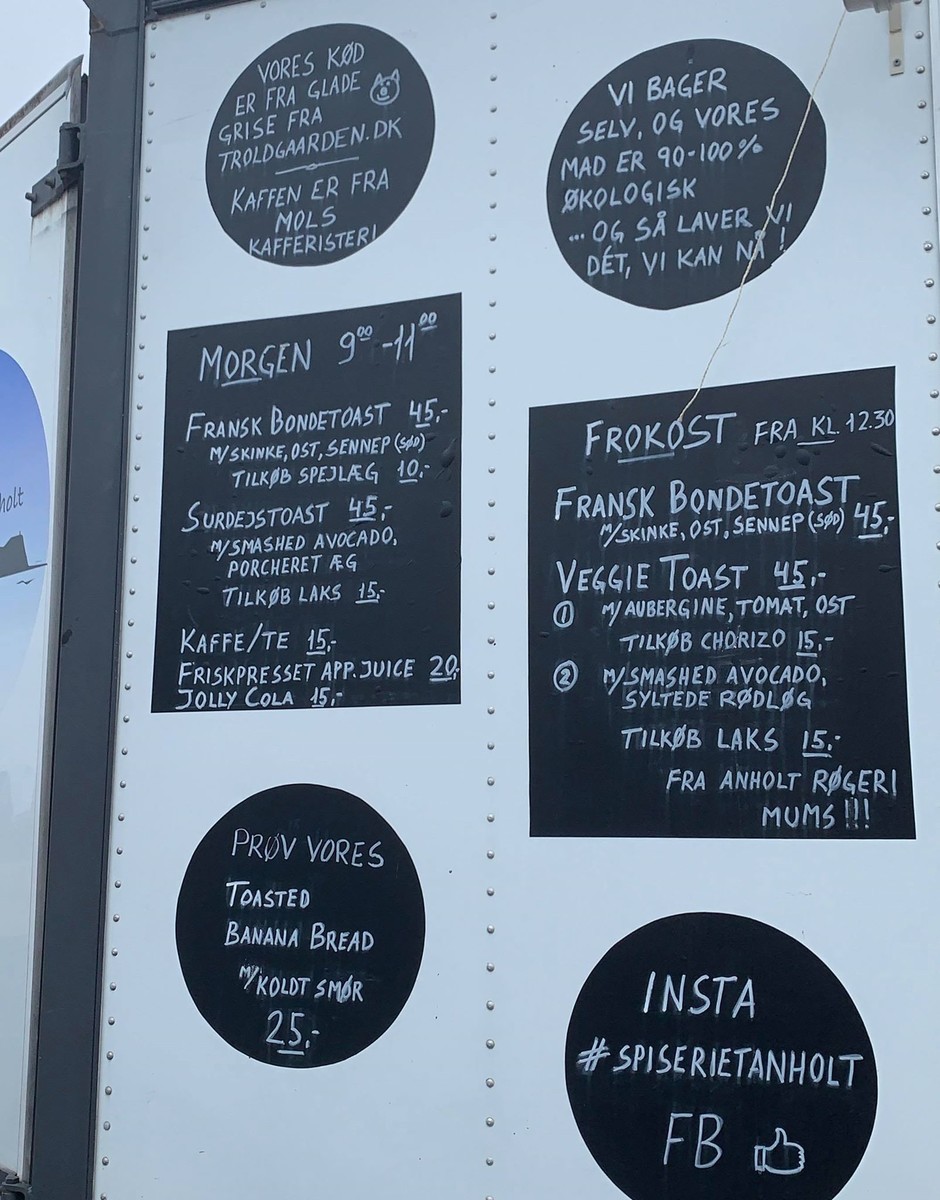 VORES KØD
ER FRA GLADE
GRISE FRA
TROLDGAARDEN.DK
KAFFEN ER FRA
MOLS
KAFFERISTERI
VI BAGER
SELV, OG VORES
MAD ER 90-100%
ØKOLOGISK
... OG SÅ LAVER VI
DÉT, VI KAN NÅ !
MORGEN 9⁰⁰-11⁰⁰
FRANSK BONDETOAST 45,-
M/SKINKE, OST, SENNEP (SØD)
TILKØB SPEJLÆG 10,-
SURDEJSTOAST 45,-
M/SMASHED AVOCADO,
PORCHERET ÆG
TILKØB LAKS 15,-
KAFFE/TE 15,-
FRISKPRESSET APP. JUICE 20,-
JOLLY COLA 15,-
FROKOST FRA KL. 12.30
FRANSK BONDETOAST
M/SKINKE, OST, SENNEP (SØD) 45,-
VEGGIE TOAST 45,-
① M/AUBERGINE, TOMAT, OST
TILKØB CHORIZO 15,-
② M/SMASHED AVOCADO,
SYLTEDE RØDLØG
TILKØB LAKS 15,-
FRA ANHOLT RØGERI
MUMS !!!
PRØV VORES
TOASTED
BANANA BREAD
M/KOLDT SMØR
25,-
INSTA
#SPISERIETANHOLT
FB
holt